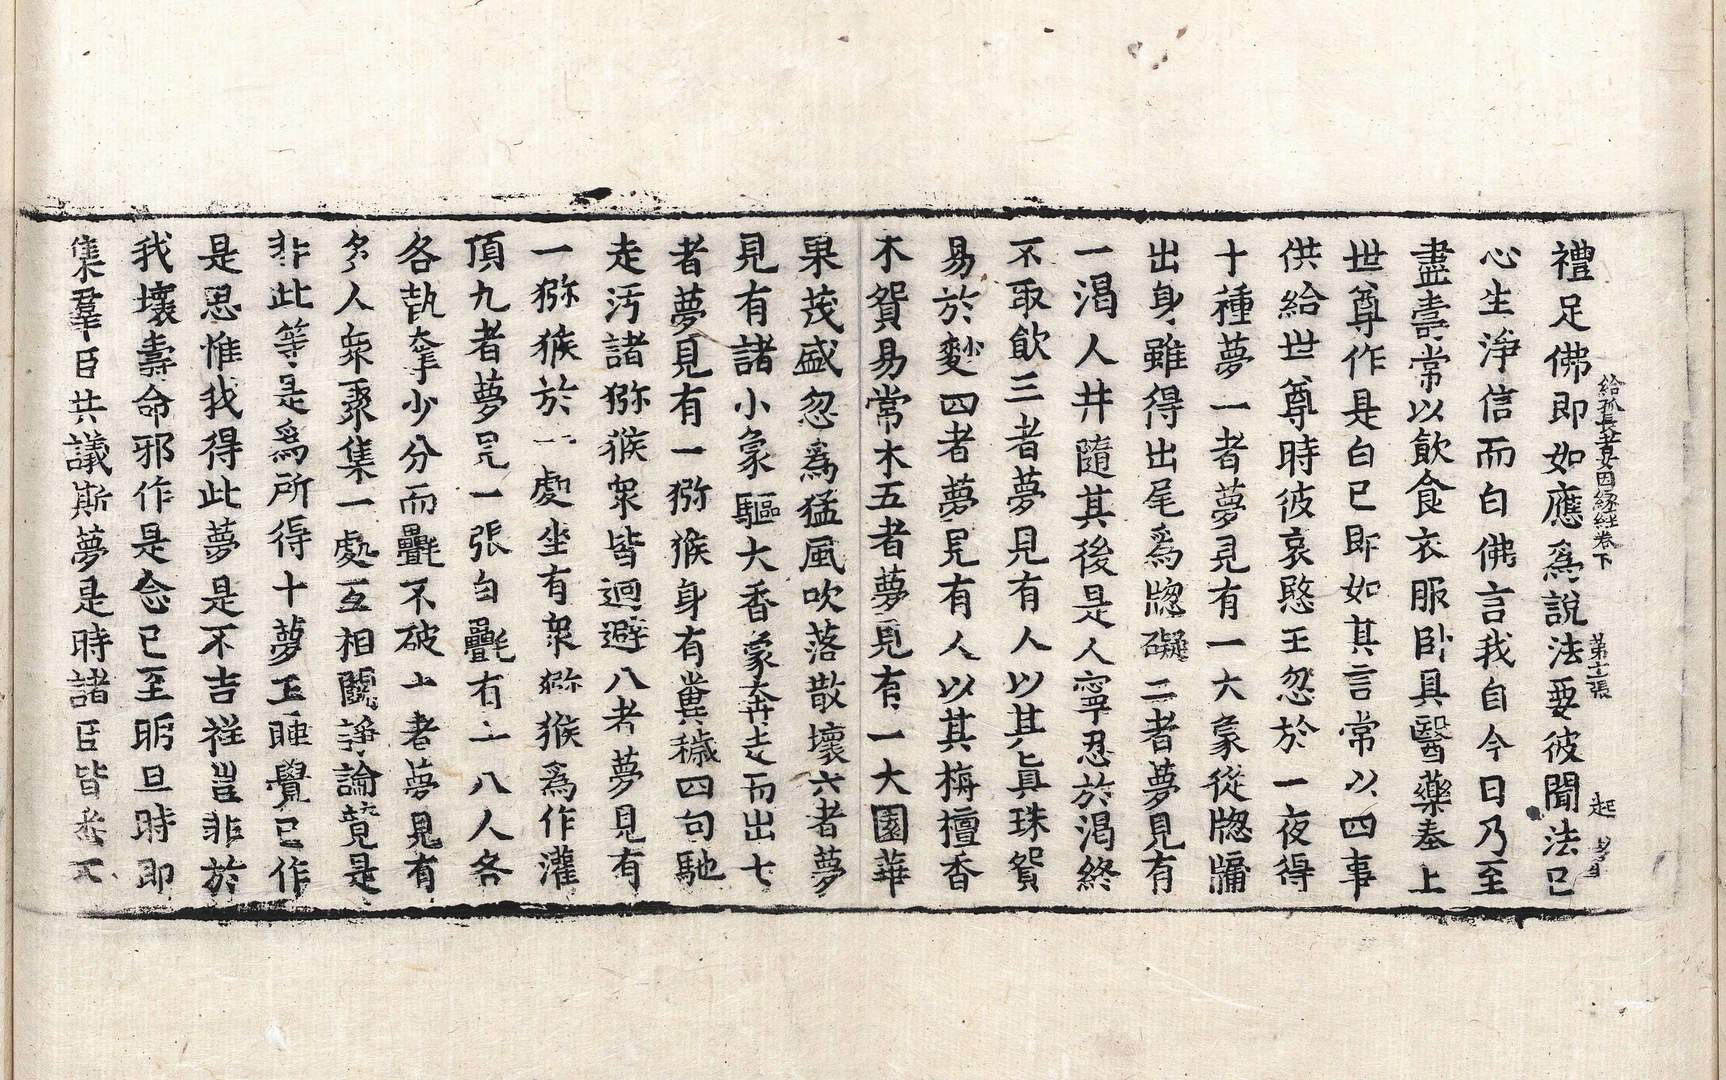 給孤長者女因緣經卷下 第十張 起
禮足佛即如應爲說法要彼聞法已
心生淨信而白佛言我自今日乃至
盡壽常以飲食衣服卧具醫藥奉上
世尊作是白已即如其言常以四事
供給世尊時彼哀愍王忽於一夜得
十種夢一者夢見有一大象從牕牖
出身雖得出尾爲牕礙二者夢見有
一渴人井隨其後是人寧忍於渴終
不取飲三者夢見有人以其真珠貿
易於麨四者夢見有人以其栴檀香
木貿易常木五者夢見有一大園華
果茂盛忽爲猛風吹落散壞六者夢
見有諸小象驅大香象奔走而出七
者夢見有一獼猴身有糞穢四向馳
走汚諸獼猴衆皆迴避八者夢見有
一獼猴於一處坐有衆獼猴爲作灌
頂九者夢見一張白㲲有十八人各
各執奪少分而㲲不破十者夢見有
多人衆聚集一處互相鬭諍論競是
非此等是爲所得十夢王睡覺已作
是思惟我得此夢是不吉祥豈非於
我壞壽命邪作是念已至明旦時即
集羣臣共議斯夢是時諸臣皆悉不